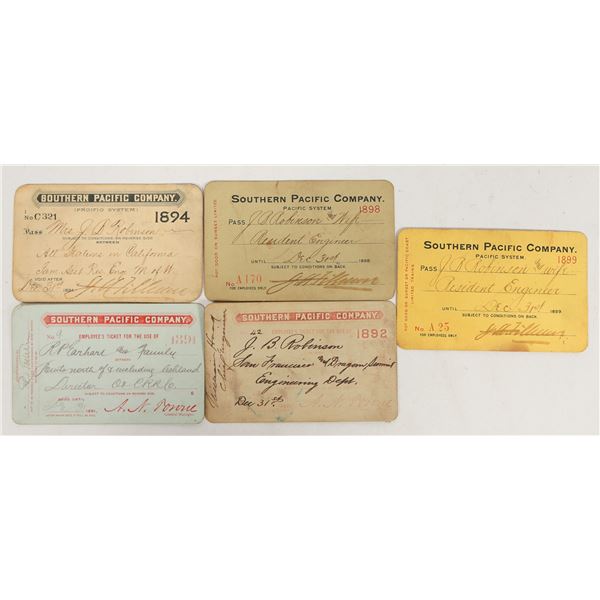 SOUTHERN PACIFIC COMPANY.
(PACIFIC SYSTEM)
No C321 1894
Pass Mrs J. B. Robinson
SUBJECT TO CONDITIONS ON REVERSE SIDE
BETWEEN
All Stations in California
Eng. M of W.
VOID AFTER
Dec 31st
SOUTHERN PACIFIC COMPANY.
PACIFIC SYSTEM.
1898
PASS J B Robinson and Wife
Resident Engineer
UNTIL Dec 31st 1898
SUBJECT TO CONDITIONS ON BACK.
No. A 170
FOR EMPLOYES ONLY
NOT GOOD ON SUNSET LIMITED
SOUTHERN PACIFIC COMPANY.
PACIFIC SYSTEM.
1899
PASS J B Robinson and wife
Resident Engineer
UNTIL Dec 31st 1899.
SUBJECT TO CONDITIONS ON BACK.
No. A 25
FOR EMPLOYES ONLY
SOUTHERN PACIFIC COMPANY.
No 9 EMPLOYE'S TICKET FOR THE USE OF 1891
R P Earhart and family
BETWEEN
Points north of & including Ashland
Director O & C RR Co.
SUBJECT TO CONDITIONS ON REVERSE SIDE.
GOOD UNTIL
1891.
A. N. Towne
General Manager
SOUTHERN PACIFIC COMPANY.
42 EMPLOYE'S TICKET FOR THE USE OF 1892
J. B. Robinson
San Francisco and Dragoon Summit
Engineering Dept.
Dec 31st A. N. Towne